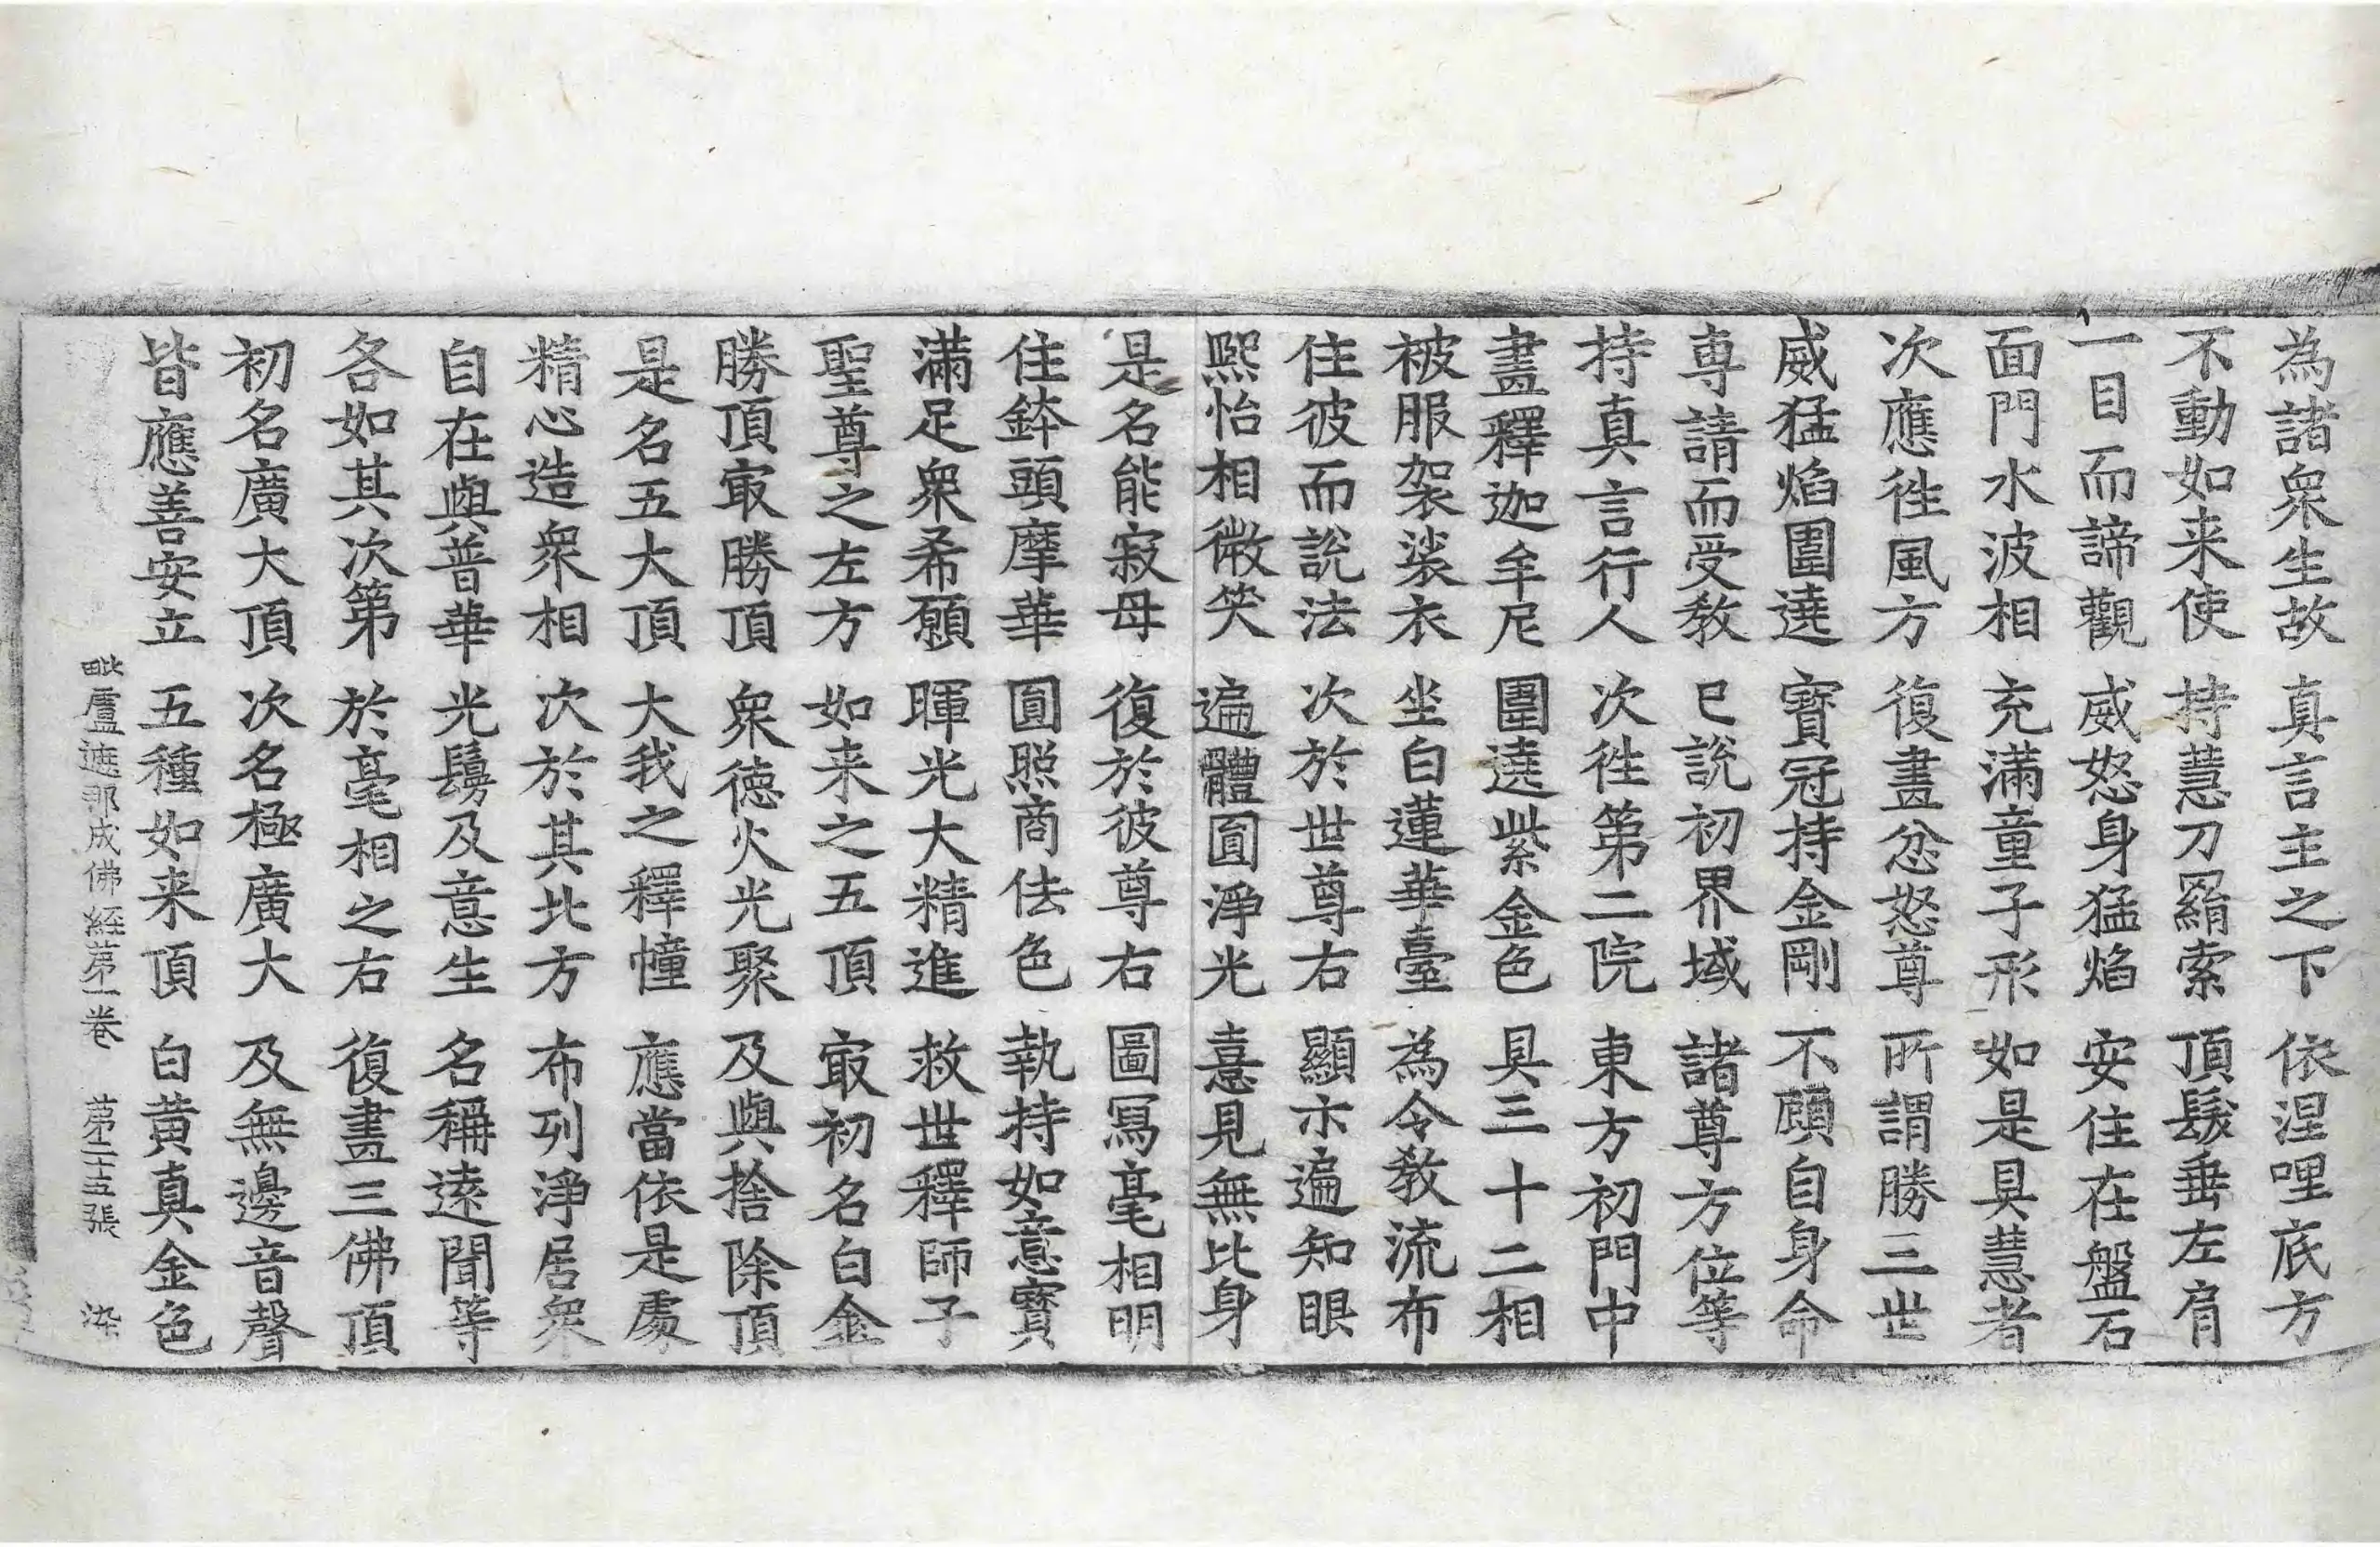 為諸衆生故　真言主之下　依涅哩底方
不動如来使　持慧刀羂索　頂髮垂左肩
一目而諦觀　威怒身猛焰　安住在盤石
面門水波相　充滿童子形　如是具慧者
次應徃風方　復畫忿怒尊　所謂勝三世
威猛焰圍遶　寶冠持金剛　不顧自身命
專請而受教　已說初界域　諸尊方位等
持真言行人　次徃第二院　東方初門中
畫釋迦牟尼　圍遶紫金色　具三十二相
被服袈裟衣　坐白蓮華臺　為令教流布
住彼而說法　次於世尊右　顯示遍知眼
熈怡相微笑　遍體圓淨光　憙見無比身
是名能寂母　復於彼尊右　圖寫毫相明
住鉢頭摩華　圓照商佉色　執持如意寶
滿足衆希願　暉光大精進　救世釋師子
聖尊之左方　如来之五頂　㝡初名白金
勝頂㝡勝頂　衆德火光聚　及與捨除頂
是名五大頂　大我之釋幢　應當依是處
精心造衆相　次於其北方　布列淨居衆
自在與普華　光鬘及意生　名稱遠聞等
各如其次第　於毫相之右　復畫三佛頂
初名廣大頂　次名極廣大　及無邊音聲
皆應善安立　五種如来頂　白黃真金色
毗盧遮那成佛經第一卷　第二十五張　染